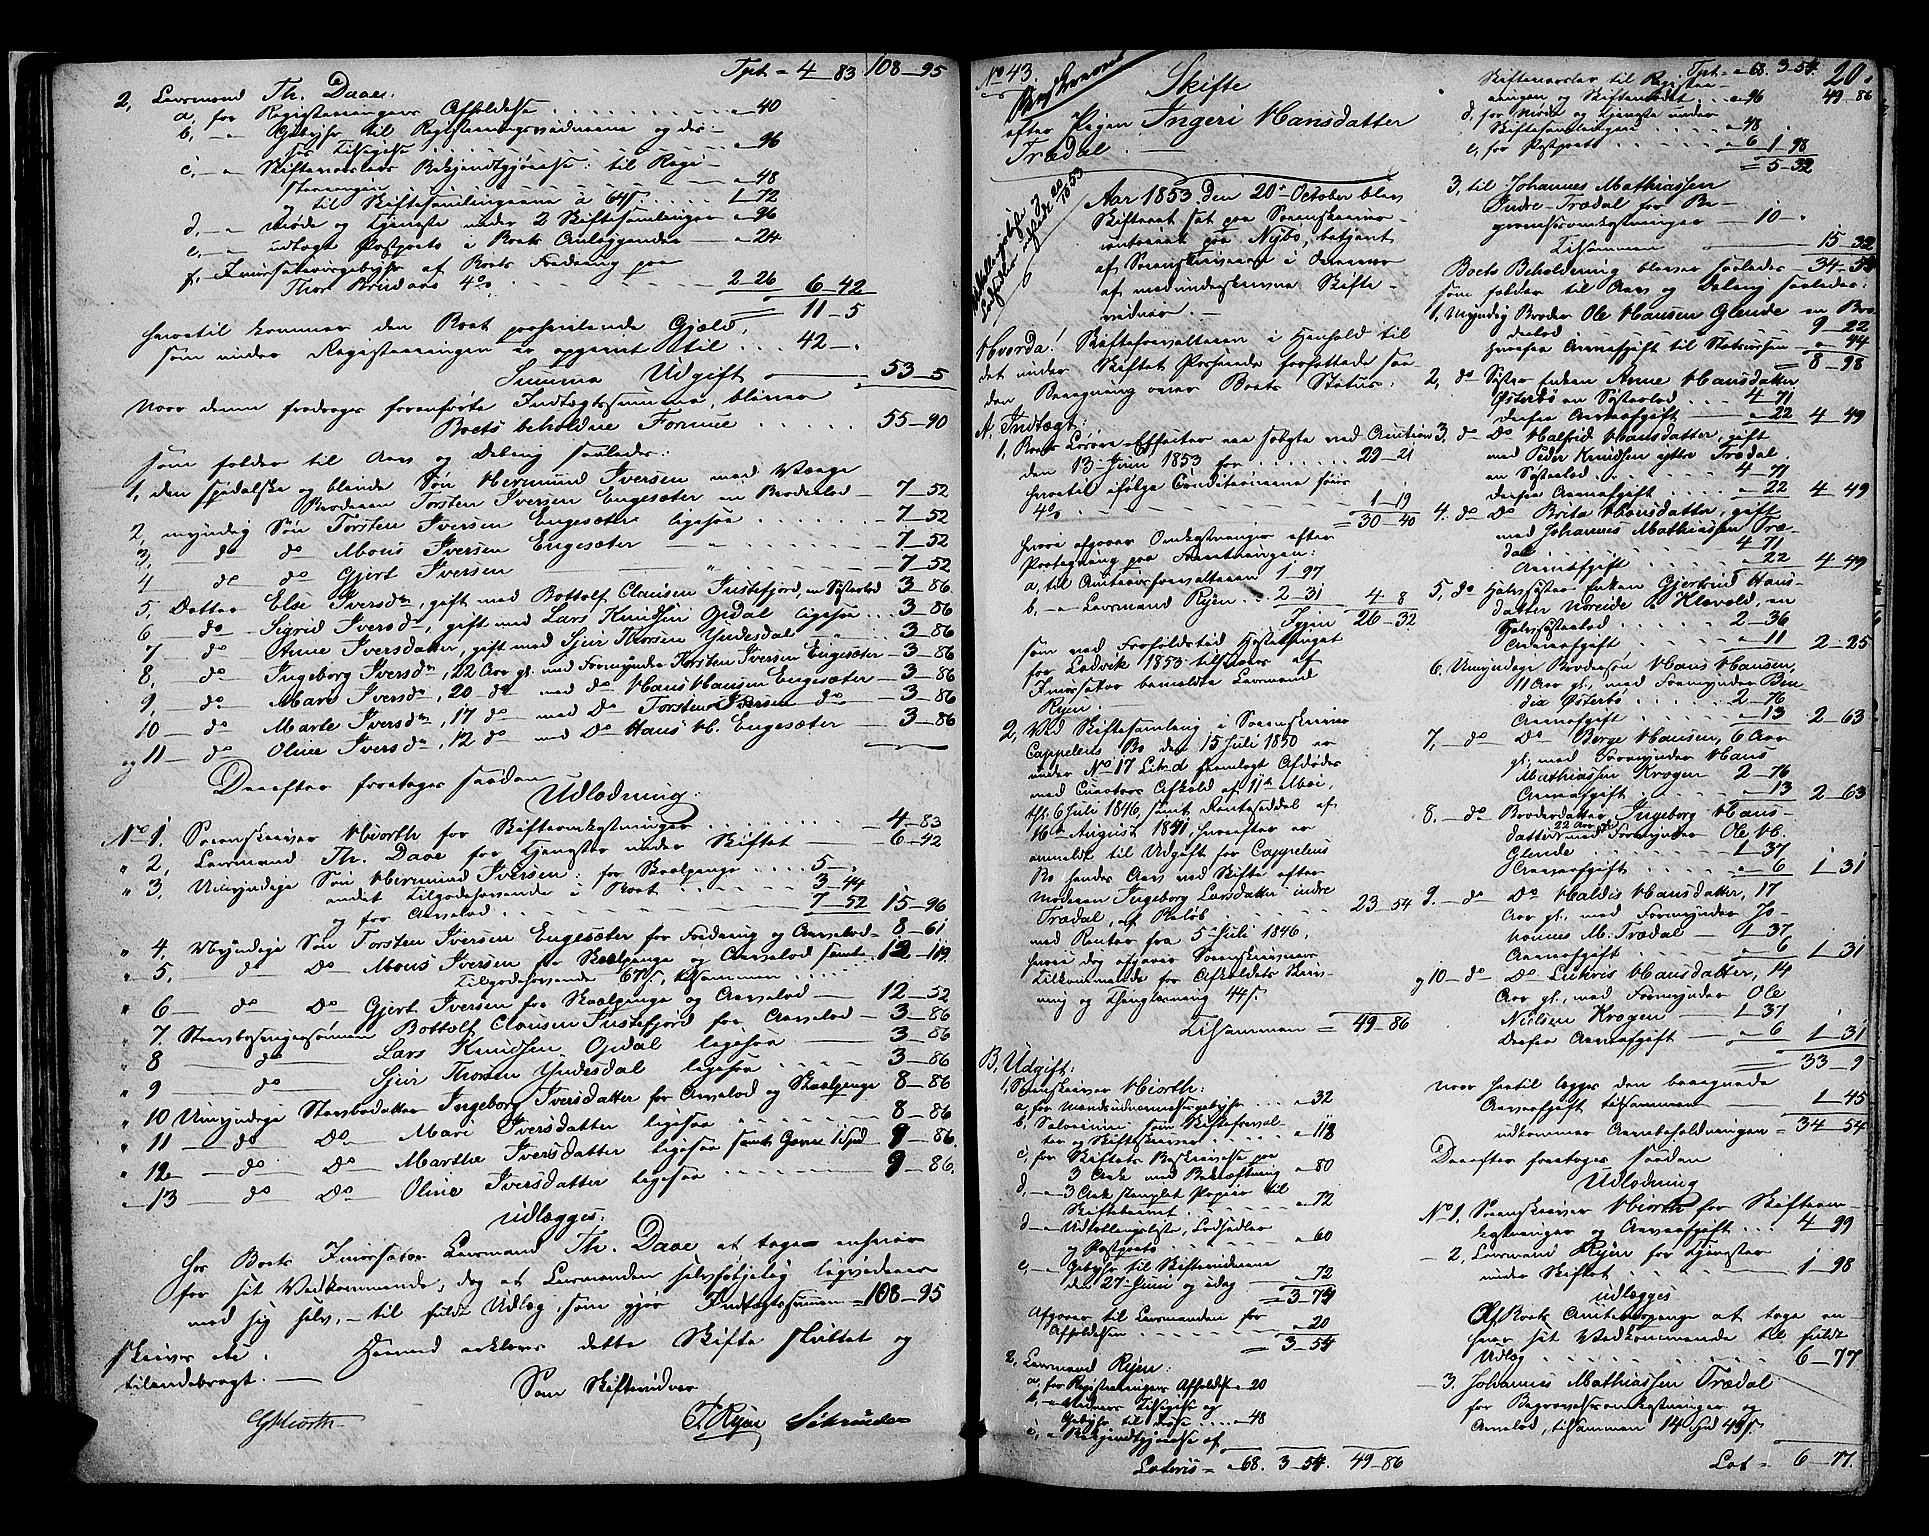 Tpt = 4_83 108_95
2, Lensmand Th. Daae:
a, for Registreringens Afholdelse - 40
b, - Gebyhr til Registreringsvidnerne og deres
Tilsigelse - 96
c, - Skiftevarslers Bekjendtgjørelse: til Registreringen
- 48
og til Skiftesamlingerne à 64 s. 1_72
d, - Møde og Tjeneste under 2 Skiftesamlinger - 96
e, - udlagt Postporto i Boets Anliggender - 24
f, Incassatorgebyhr af Boets Fordring paa
Thor Brudaas 4% 2_26 6_42
11_5
hertil kommer den Boet paahvilende Gjæld,
som under Registreringen er opgivet til . . . 42_"
Summa Udgift 53_5
naar denne fradrages foranførte Indtægtssumma, bliver
Boets beholdne Formue 55_90
som falder til Arv og Deling saaledes:
1, den spedalske og blinde Søn Hermund Iversen med Værge
Broderen Torsten Iversen Engesæter en Broderlod 7_52
2, myndig Søn Torsten Iversen Engesæter ligesaa 7_52
3, do do Mons Iversen Engesæter " 7_52
4 do do Gjert Iversen " 7_52
5, Datter Else Iversdr, gift med Bottolf Clausen Instefjord, en Søsterlod 3_86
6 do Sigrid Iversdr, gift med Lars Knudsen Opdal ligesaa 3_86
7 do Anne Iversdatter, gift med Sjur Thorsen Yndesdal " 3_86
8, do Ingeborg Iversdr, 22 Aar gl. med Formynder Torsten Iversen Engesæter 3_86
9, do Mari Iversdr, 20 do med do Hans Hansen Engesæter 3_86
10 do Marte Iversdr, 17 do med Do Torsten Iversen do 3_86
og 11 do Oline Iversdr, 12 do med Do Hans H. Engesæter 3_86
Derefter foretages saadan
Udlodning:
No 1. Sorenskriver Hiorth for Skifteomkostninger 4_83
" 2, Lensmand Th. Daae for Tjenester under Skiftet 6_42
" 3, Umyndige Søn Hermund Iversen: for Skoelpenge 5_"
andet Tilgodehavende i Boet 3_44
og for Arvelod 7_52 15_96
" 4, Myndige Søn Torsten Iversen Engesæter for Fordring og Arvelod 8_61
" 5, do Do Mons Iversen for Skoelpenge og Arvelod samt
Tilgodehavende 67 s., tilsammen 12_119
" 6 do Do Gjert Iversen for Skoelpenge og Arvelod 12_52
" 7. Stervbosvigersønnen Bottolf Clausen Instefjord for Arvelod 3_86
" 8 do Lars Knudsen Opdal ligesaa 3_86
" 9 do Sjur Thorsen Yndesdal ligesaa 3_86
" 10 Umyndige Stervbodatter Ingeborg Iversdatter for Arvelod og Skoelpenge 8_86
" 11 do Do Mari Iversdatter ligesaa 8_86
" 12 do Do Marthe Iversdatter ligesaa samt Gave 1 Spd 9_86
" 13 do Do Oline Iversdatter ligesaa 9_86.
udlægges:
hos Boets Incassator Lensmand Th. Daae at tage enhver
for sit Vedkommende, dog at Lensmanden selvfølgelig liqviderer
med sig selv, - til fuldt Udlæg, som gjør Indtægtssummen = 108_95
skriver etc.
Hermed erklæres dette Skifte sluttet og
tilendebragt.
Som Skiftevidner
GHiorth
C. Ryen
No 43.
Skifte
efter Pigen Ingeri Hansdatter
Trædal.
Aar 1853 den 20de October blev
Skifteret sat paa Sorenskrivercontoret
paa Nybø, betjent
af Sorenskriveren i Overvær
af medunderskrevne Skiftevidner.
Hvorda! Skifteforvalteren i Henhold til
det under Skiftet Passerede forfattede saadan
Beregning over Boets Status:
A. Indtægt:
1, Boets Løsøre-Effecter ere solgte ved Auction
den 13 Juni 1853 for 29_21
hvortil ifølge Conditionerne føies
4% 1_19
= 30_40
hvori afgaaer Omkostninger efter
Protegning paa Forretningen:
a, til Auctionsforvalteren 1_97
b, - Lensmand Ryen 2_31 4_8
Igjen 26_32
som ved Forfaldstid Høsttinget
for Ladvik 1853 tilsvares af
Incassator bemeldte Lensmand
Ryen.
2, Ved Skiftesamling i Sorenskriver
Cappelens Bo den 15 Juli 1850 er
under No 17 Lit. d fremlagt Afdødes
med Curators Afkald af 11te Mai,
thl. 6 Juli 1846, samt Renteseddel af
16de August 1851, hvorefter er
anmeldt til Udgift for Cappelens
Bo hendes Arv ved Skifte efter
Moderen Ingeborg Larsdatter indre
Trædal, af Beløb 23_54
med Renter fra 5 Juli 1846,
hvori dog afgaaer Sorenskriverens
Tilkommende for Afkaldets Skrivning
og Thinglæsning 44 s.
Tilsammen = 49_86
B, Udgift:
1, Sorenskriver Hiorth:
a, for Mandsudnævnelsesgebyhr - 32
b, Salarium som Skifteforvalter
og Skifteskriver - 118
c, for Skiftets Beskrivelse paa
3 Ark med Bekræftning - 80
d, - 3 Ark stemplet Papir til
Skiftebrevet - 72
d - Udlodningsliste, Lodsedler
og Postporto - 60
e, - Gebyhr til Skiftevidnerne
den 27 Juni og idag - 72
= 3_74
Afgaaer til Lensmanden for
Afholdelsen - 20
= 3_54
2, Lensmand Ryen:
a, for Registreringens Afholdelse - 20
b, - Vidners Tilsigelse og
Gebyhr til disse - 48
c, - Bekjendtgjørelse af
Lateris = - 68. 3_54. 49_86
Tpt = - 68. 3_54. 20.
Skiftevarsler til Registreringen 49_86
og Skiftemødet - 96
d, for Møde og Tjeneste under
Skiftesamlingen - 48
e, for Postporto - 6 1_98
= 5_32
3, til Johannes Mathiassen
Indre-Trædal for Begravelsesomkostninger
10_"
Tilsammen 15_32
Boets Beholdning bliver saaledes 34_54
som falder til Arv og Deling saaledes:
1, Myndig Broder Ole Hansen Glende en Broderlod
9_22
herfra Arveafgift til Statscassen - 44
= 8_98
2, do Søster Enken Anne Hansdatter
Østerbø en Søsterlod 4_71
derfra Arveafgift - 22 4_49
3, do Do Halfrid Hansdatter, gift
med Peder Knudsen ytre Trædal.
en Søsterlod 4_71
derfra Arveafgift - 22 4_49
4. do Do Brita Hansdatter, gift
med Johannes Mathiassen Trædal
4_71
Arveafgift - 22 4_49
5, do Halvsøster Enken Gjertrud Hansdatter
Noreide a Klevold, en
Halvsøsterlod 2_36
Arveafgift - 11 2_25
6. Umyndige Brodersøn Hans Hansen,
11 Aar gl., med Formynder Bendix
Østerbø 2_76
Arveafgift - 13 2_63
7, do Do Børge Hansen, 6 Aar
gl., med Formynder Hans
Mathiassen Krogen 2_76
Arveafgift - 13 2_63
8. do Broderdatter Ingeborg Hansdatter
22 Aar gl. med Formynder Ole H.
Glende 1_37
Arveafgift - 6 1_31
9. do Do Haldis Hansdatter, 17
Aar gl., med Formynder Johannes
M. Trædal 1_37
Arveafgift - 6 1_31
og 10 do Do Lukris Hansdatter, 14
Aar gl., med Formynder Ole
Nielsen Krogen 1_37
Derfra Arveafgift - 6 1_31
= 33_9
naar hertil lægges den beregnede
Arveafgift tilsammen 1_45
udkommer Arvebeholdningen = 34_54
Derefter foretages saadan
Udlodning
No 1, Sorenskriver Hiorth for Skifteomkostninger
og Arveafgift 4_99
2, Lensmand Ryen for Tjenester
under Skiftet 1_98
udlægges
Af Boets Auctionspenge at tage enhver
sit Vedkommende til fuldt
Udlæg 6_77
3. Johannes Mathiassen Trædal
for Begravelsesomkostninger og
Arvelod, tilsammen 14 Spd 49 s.
Lat = 6_77.